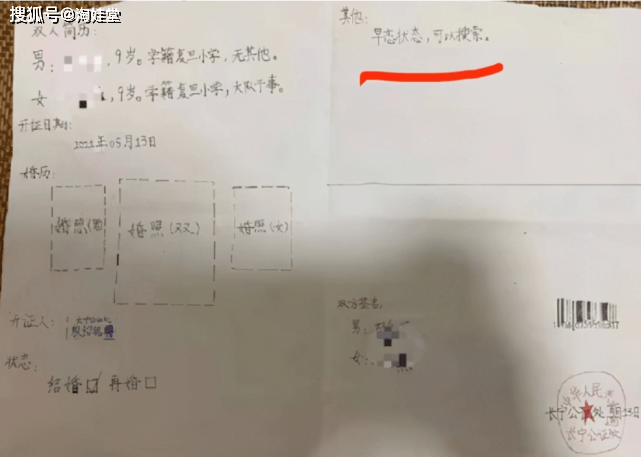 搜狐号@淘娃堂
双人简历:
男: ,9岁。学籍复旦小学,无其他。
女 ,9岁。学籍复旦小学,大队干事。
开证日期:
2022年05月13日
婚历:
婚照(男)
婚照(双)
婚照(女)
开证人:
状态:
结婚☑ 再婚☐
其他:
早恋状态,可以搜索。
双方签名:
男:
女:
中华人民
长宁公证处
长宁公证处